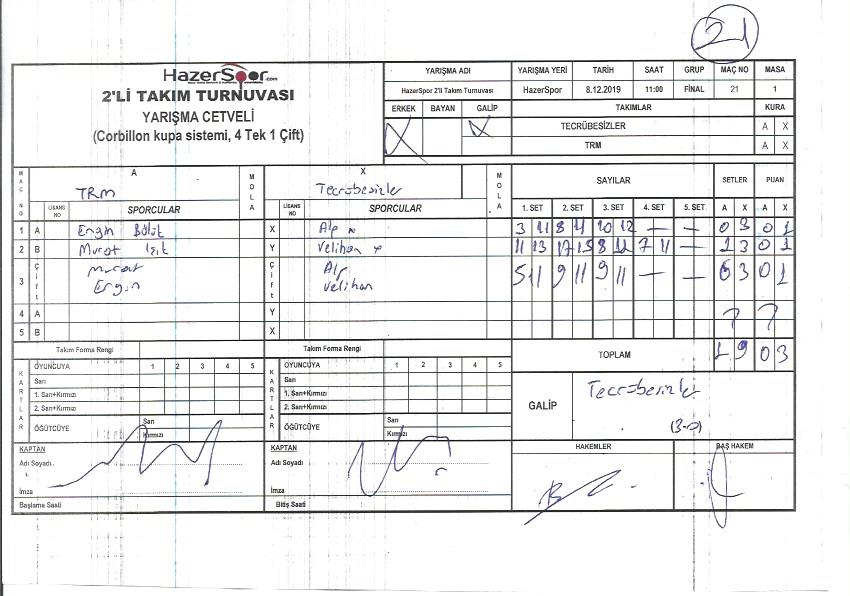 21
HazerSpor.com
2'Lİ TAKIM TURNUVASI
YARIŞMA CETVELİ
(Corbillon kupa sistemi, 4 Tek 1 Çift)
YARIŞMA ADI YARIŞMA YERİ TARİH SAAT GRUP MAÇ NO MASA
HazerSpor 2'li Takım Turnuvası HazerSpor 8.12.2019 11:00 FİNAL 21 1
ERKEK BAYAN GALİP TAKIMLAR KURA
X X TECRÜBESİZLER A X
TRM A X
MAÇ NO A MOLA X MOLA SAYILAR SETLER PUAN
TRM Tecrübesizler
LİSANS NO SPORCULAR LİSANS NO SPORCULAR 1. SET 2. SET 3. SET 4. SET 5. SET A X A X
1 A Engin Bölük X Alp 3 11 8 11 10 12 — — 0 3 0 1
2 B Murat Işık Y Velihan 11 13 17 15 8 11 7 11 — 1 3 0 1
3 Çift Murat Engin Çift Alp Velihan 5 11 9 11 9 11 — — 0 3 0 1
4 A Y
5 B X
TOPLAM 1 9 0 3
Takım Forma Rengi Takım Forma Rengi
KARTLAR OYUNCUYA 1 2 3 4 5 KARTLAR OYUNCUYA 1 2 3 4 5
Sarı Sarı
1. Sarı+Kırmızı 1. Sarı+Kırmızı
2. Sarı+Kırmızı 2. Sarı+Kırmızı
ÖĞÜTCÜYE Sarı ÖĞÜTCÜYE Sarı
Kırmızı Kırmızı
GALİP Tecrübesizler
(3-0)
KAPTAN KAPTAN HAKEMLER BAŞ HAKEM
Adı Soyadı Adı Soyadı
İmza İmza
Başlama Saati Bitiş Saati